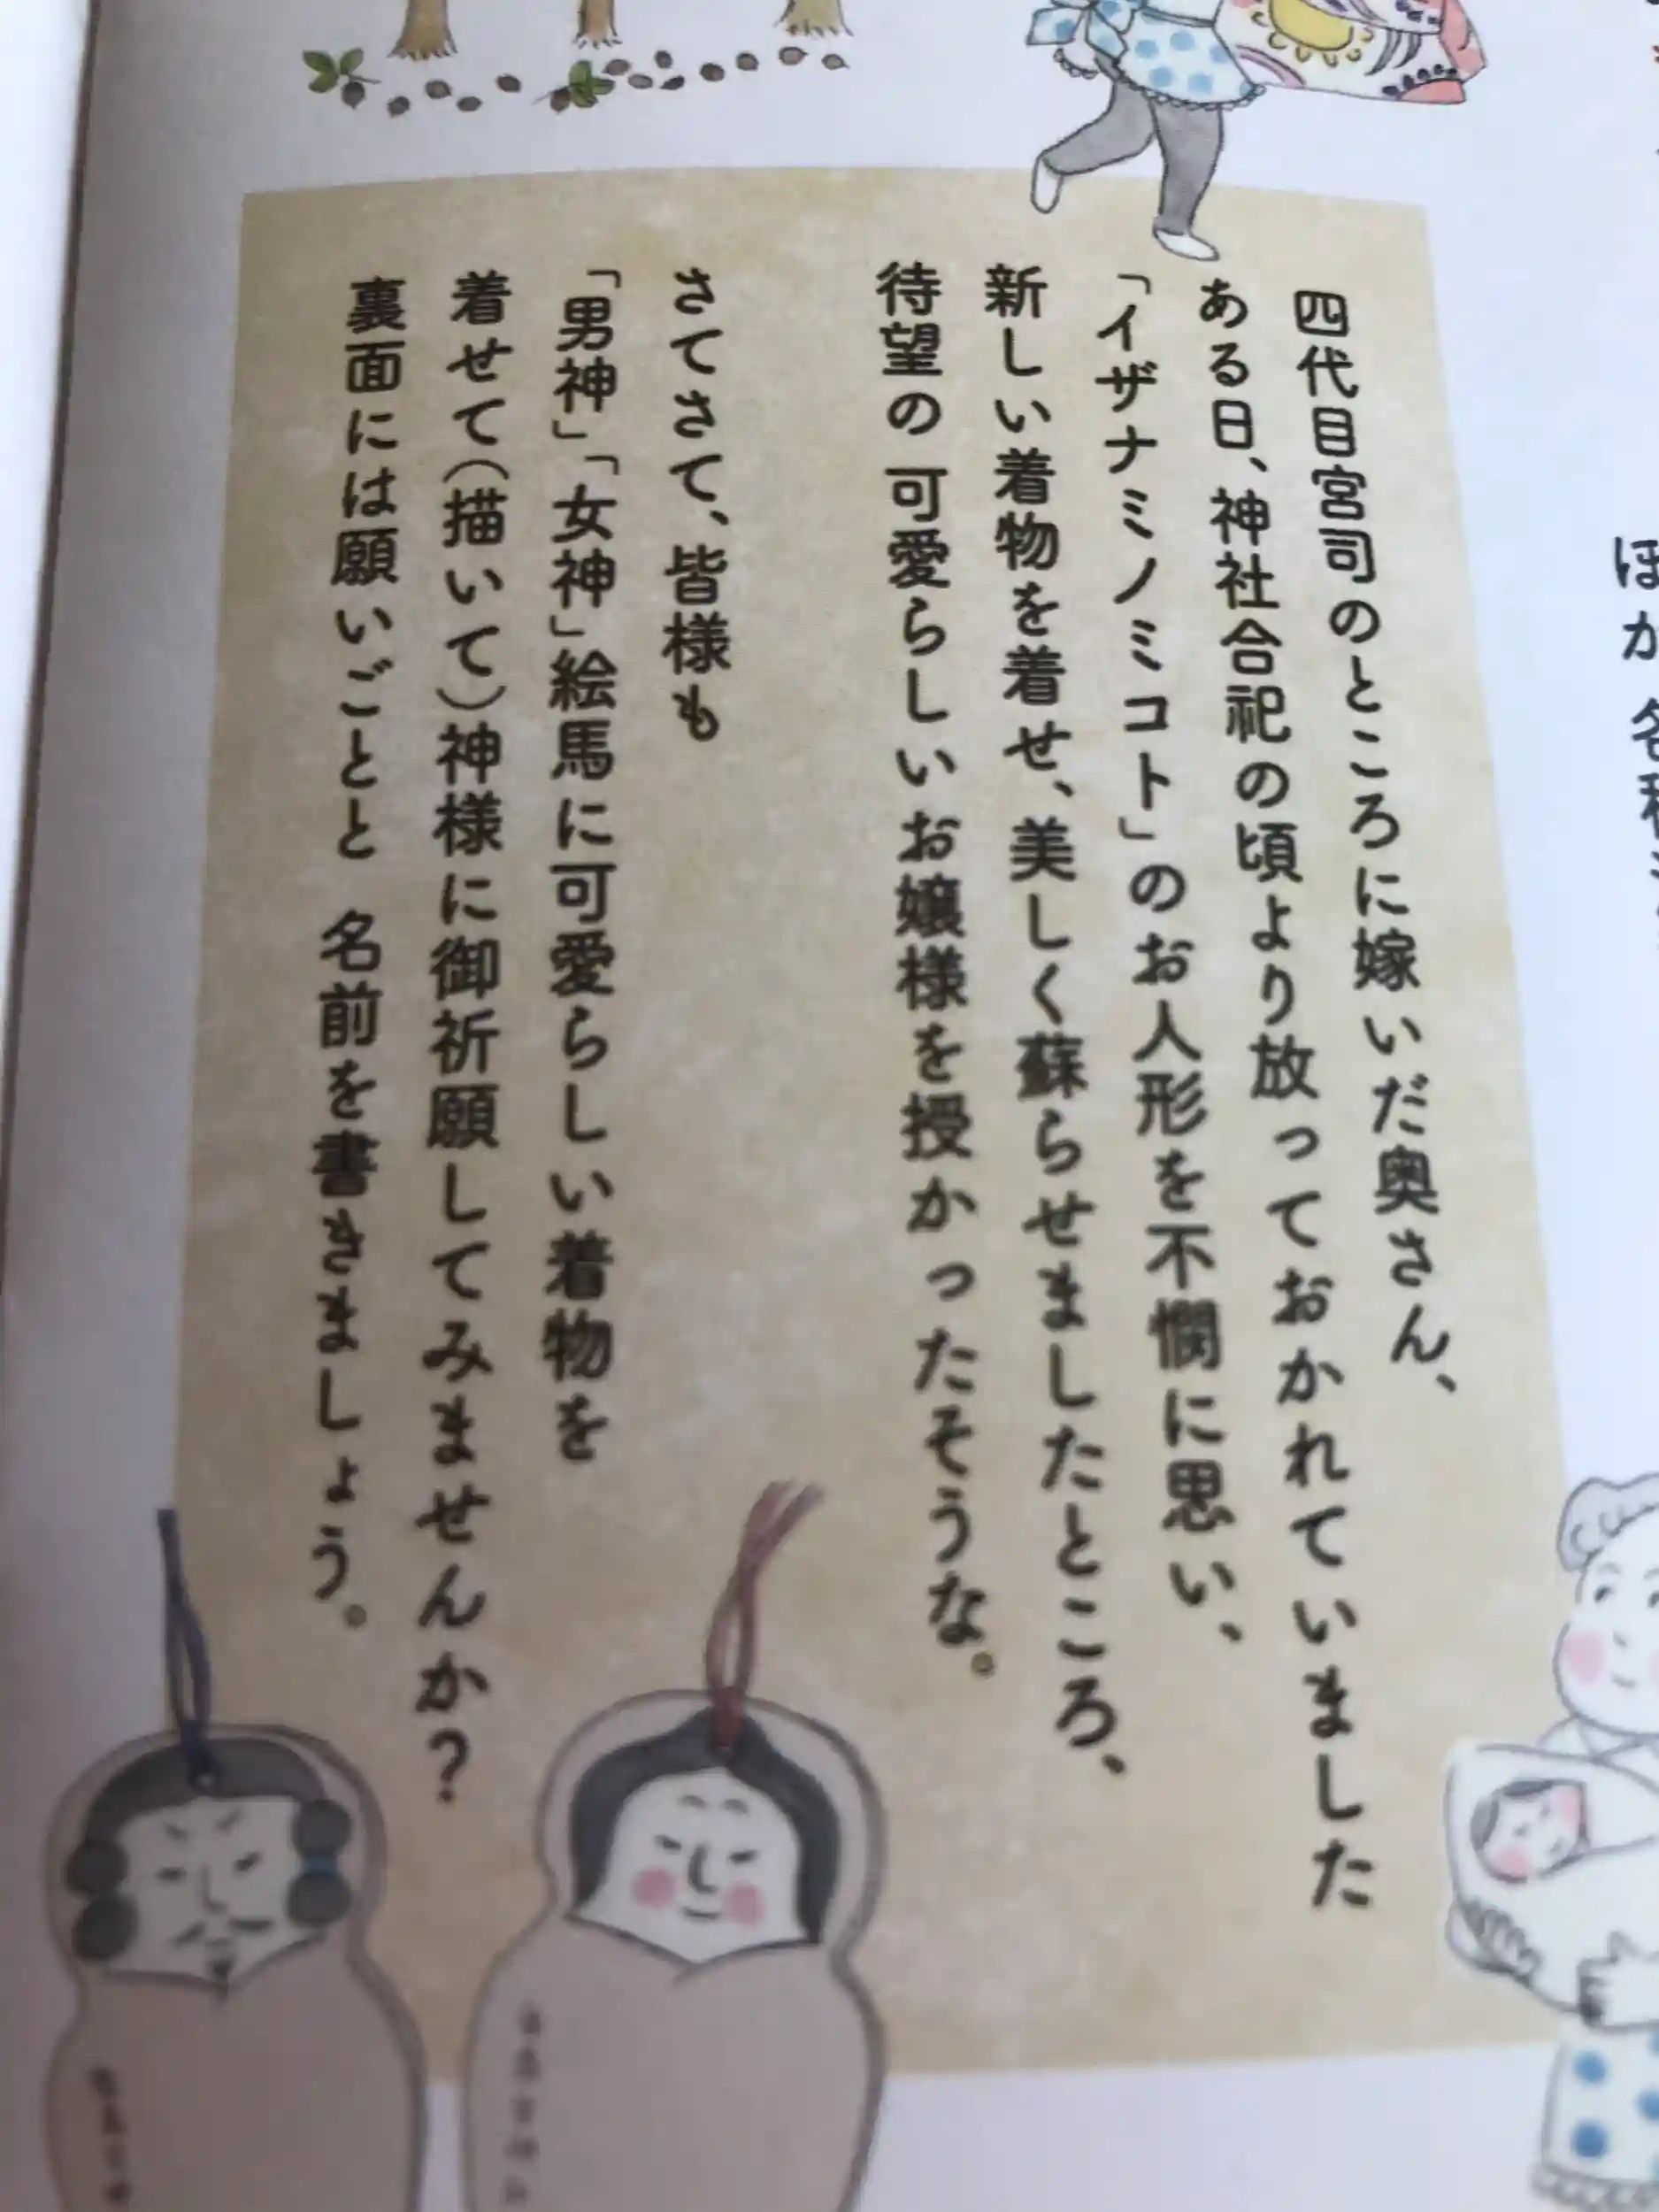 四代目宮司のところに嫁いだ奥さん、
ある日、神社合祀の頃より放っておかれていました
「イザナミノミコト」のお人形を不憫に思い、
新しい着物を着せ、美しく蘇らせましたところ、
待望の 可愛らしいお嬢様を授かったそうな。
さてさて、皆様も
「男神」「女神」絵馬に可愛らしい着物を
着せて(描いて)神様に御祈願してみませんか?
裏面には願いごとと 名前を書きましょう。